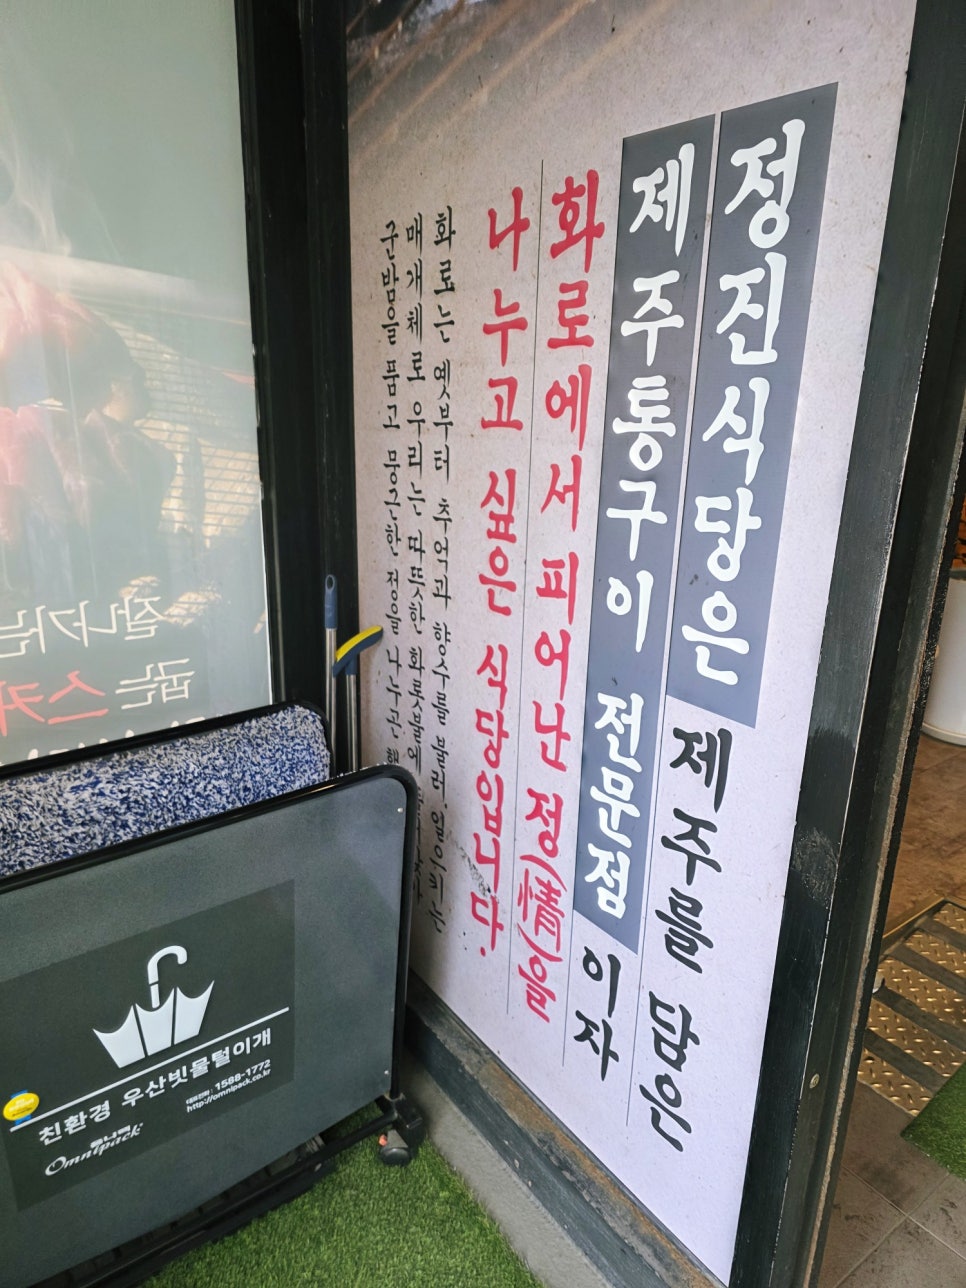 정진식당은 제주를 담은
제주통구이 전문점 이자
화로에서 피어난 정(情)을
나누고 싶은 식당입니다.
화로는 옛부터 추억과 향수를 불러 일으키는
매개체로 우리는 따뜻한 화롯불에
군밤을 품고 뭉근한 정을 나누곤
친환경 우산빗물털이개
대표전화 : 1588-1772
http://omnipack.co.kr
옴니팩
Omnipack